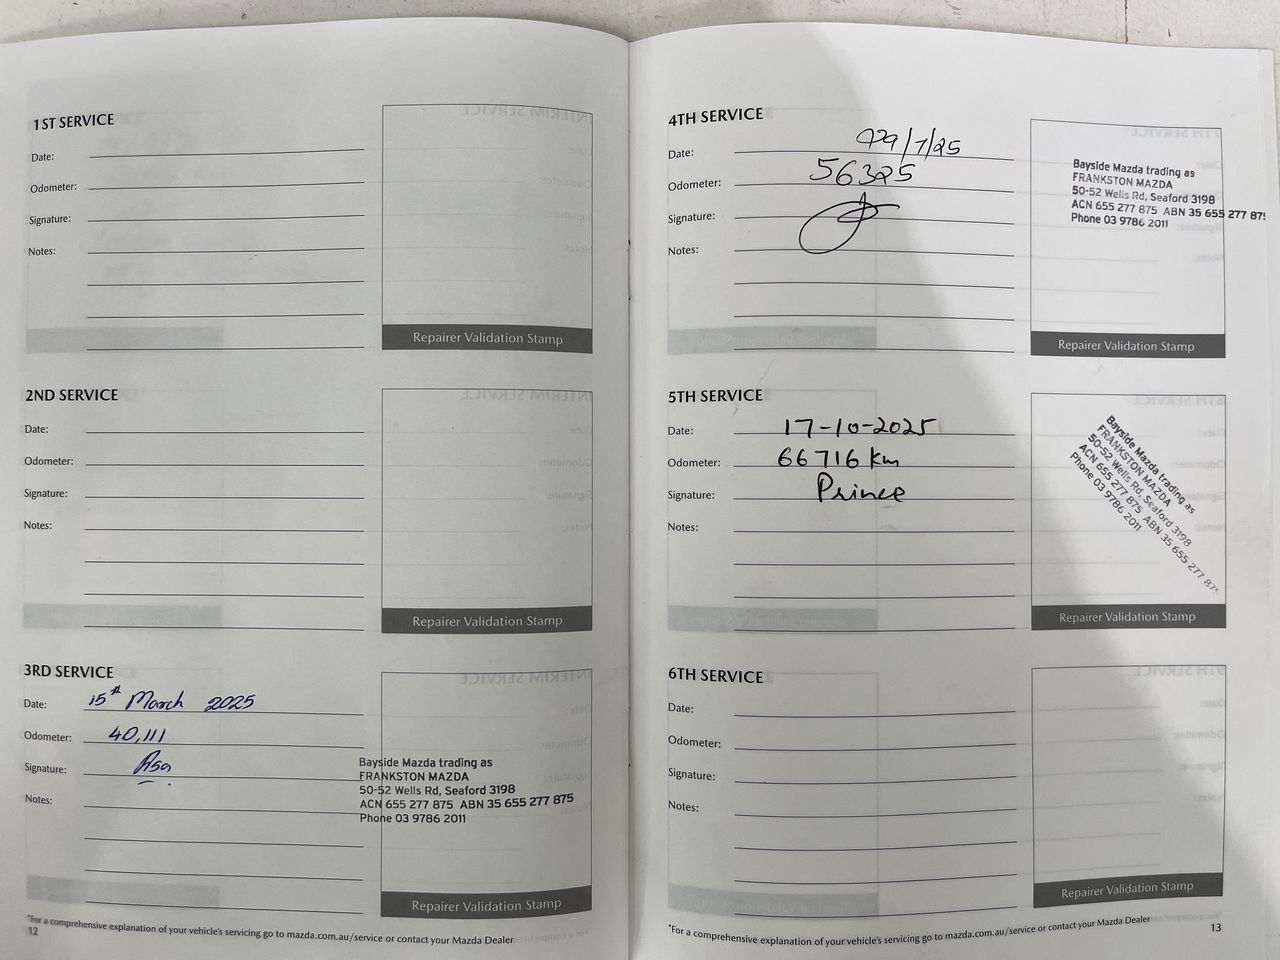 1ST SERVICE
Date:
Odometer:
Signature:
Notes:
Repairer Validation Stamp
2ND SERVICE
Date:
Odometer:
Signature:
Notes:
Repairer Validation Stamp
3RD SERVICE
Date: 15th March 2025
Odometer: 40,111
Signature:
Notes:
Bayside Mazda trading as
FRANKSTON MAZDA
50-52 Wells Rd, Seaford 3198
ACN 655 277 875 ABN 35 655 277 875
Phone 03 9786 2011
Repairer Validation Stamp
*For a comprehensive explanation of your vehicle's servicing go to mazda.com.au/service or contact your Mazda Dealer
12
4TH SERVICE
Date: 29/7/25
Odometer: 56325
Signature:
Notes:
Bayside Mazda trading as
FRANKSTON MAZDA
50-52 Wells Rd, Seaford 3198
ACN 655 277 875 ABN 35 655 277 875
Phone 03 9786 2011
Repairer Validation Stamp
5TH SERVICE
Date: 17-10-2025
Odometer: 66716 km
Signature: Prince
Notes:
Bayside Mazda trading as
FRANKSTON MAZDA
50-52 Wells Rd, Seaford 3198
ACN 655 277 875 ABN 35 655 277 875
Phone 03 9786 2011
Repairer Validation Stamp
6TH SERVICE
Date:
Odometer:
Signature:
Notes:
Repairer Validation Stamp
*For a comprehensive explanation of your vehicle's servicing go to mazda.com.au/service or contact your Mazda Dealer
13